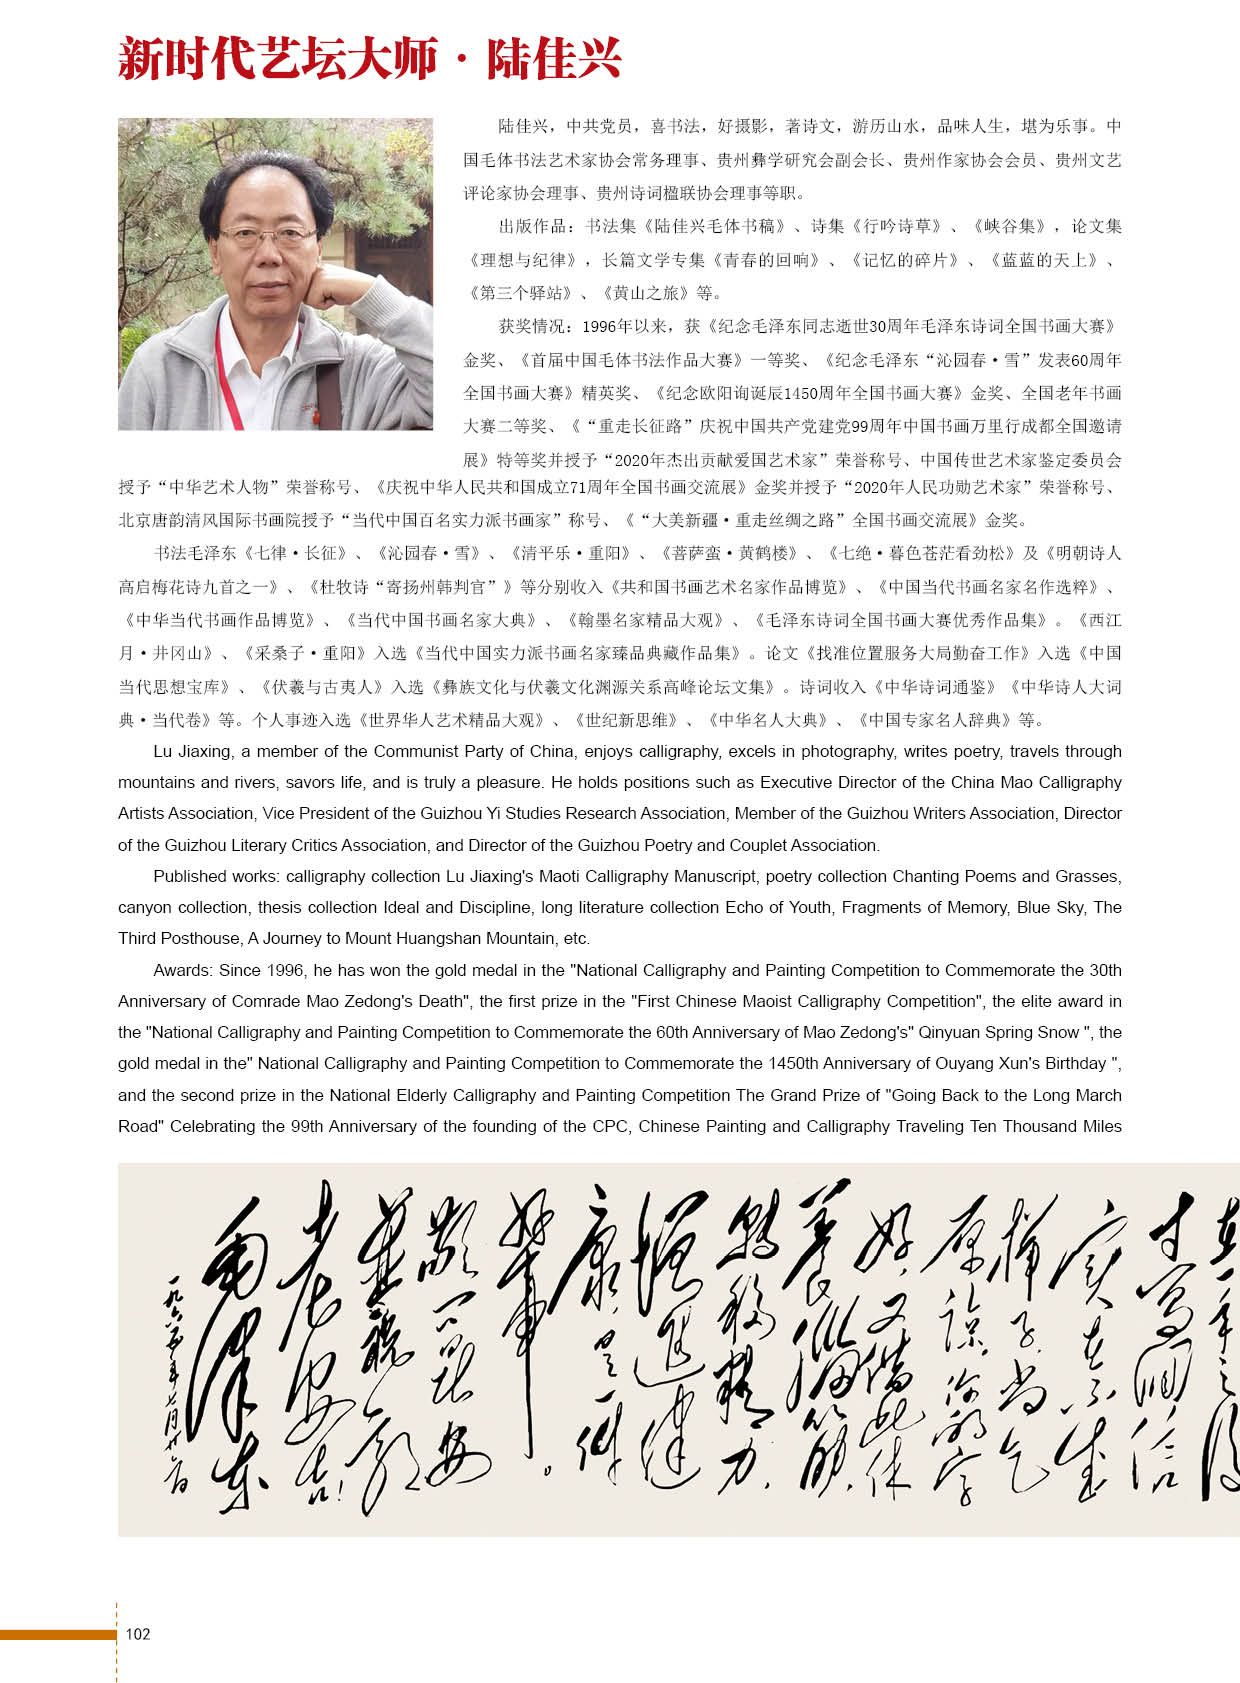 新时代艺坛大师·陆佳兴
陆佳兴，中共党员，喜书法，好摄影，著诗文，游历山水，品味人生，堪为乐事。中
国毛体书法艺术家协会常务理事、贵州彝学研究会副会长、贵州作家协会会员、贵州文艺
评论家协会理事、贵州诗词楹联协会理事等职。
出版作品：书法集《陆佳兴毛体书稿》、诗集《行吟诗草》、《峡谷集》，论文集
《理想与纪律》，长篇文学专集《青春的回响》、《记忆的碎片》、《蓝蓝的天上》、
《第三个驿站》、《黄山之旅》等。
获奖情况：1996年以来，获《纪念毛泽东同志逝世30周年毛泽东诗词全国书画大赛》
金奖、《首届中国毛体书法作品大赛》一等奖、《纪念毛泽东“沁园春·雪”发表60周年
全国书画大赛》精英奖、《纪念欧阳询诞辰1450周年全国书画大赛》金奖、全国老年书画
大赛二等奖、《“重走长征路”庆祝中国共产党建党99周年中国书画万里行成都全国邀请
展》特等奖并授予“2020年杰出贡献爱国艺术家”荣誉称号、中国传世艺术家鉴定委员会
授予“中华艺术人物”荣誉称号、《庆祝中华人民共和国成立71周年全国书画交流展》金奖并授予“2020年人民功勋艺术家”荣誉称号、
北京唐韵清风国际书画院授予“当代中国百名实力派书画家”称号、《“大美新疆·重走丝绸之路”全国书画交流展》金奖。
书法毛泽东《七律·长征》、《沁园春·雪》、《清平乐·重阳》、《菩萨蛮·黄鹤楼》、《七绝·暮色苍茫看劲松》及《明朝诗人
高启梅花诗九首之一》、《杜牧诗“寄扬州韩判官”》等分别收入《共和国书画艺术名家作品博览》、《中国当代书画名家名作选粹》、
《中华当代书画作品博览》、《当代中国书画名家大典》、《翰墨名家精品大观》、《毛泽东诗词全国书画大赛优秀作品集》。《西江
月·井冈山》、《采桑子·重阳》入选《当代中国实力派书画名家臻品典藏作品集》。论文《找准位置服务大局勤奋工作》入选《中国
当代思想宝库》、《伏羲与古夷人》入选《彝族文化与伏羲文化渊源关系高峰论坛文集》。诗词收入《中华诗词通鉴》《中华诗人大词
典·当代卷》等。个人事迹入选《世界华人艺术精品大观》、《世纪新思维》、《中华名人大典》、《中国专家名人辞典》等。
Lu Jiaxing, a member of the Communist Party of China, enjoys calligraphy, excels in photography, writes poetry, travels through
mountains and rivers, savors life, and is truly a pleasure. He holds positions such as Executive Director of the China Mao Calligraphy
Artists Association, Vice President of the Guizhou Yi Studies Research Association, Member of the Guizhou Writers Association, Director
of the Guizhou Literary Critics Association, and Director of the Guizhou Poetry and Couplet Association.
Published works: calligraphy collection Lu Jiaxing's Maoti Calligraphy Manuscript, poetry collection Chanting Poems and Grasses,
canyon collection, thesis collection Ideal and Discipline, long literature collection Echo of Youth, Fragments of Memory, Blue Sky, The
Third Posthouse, A Journey to Mount Huangshan Mountain, etc.
Awards: Since 1996, he has won the gold medal in the "National Calligraphy and Painting Competition to Commemorate the 30th
Anniversary of Comrade Mao Zedong's Death", the first prize in the "First Chinese Maoist Calligraphy Competition", the elite award in
the "National Calligraphy and Painting Competition to Commemorate the 60th Anniversary of Mao Zedong's" Qinyuan Spring Snow ", the
gold medal in the" National Calligraphy and Painting Competition to Commemorate the 1450th Anniversary of Ouyang Xun's Birthday ",
and the second prize in the National Elderly Calligraphy and Painting Competition The Grand Prize of "Going Back to the Long March
Road" Celebrating the 99th Anniversary of the founding of the CPC, Chinese Painting and Calligraphy Traveling Ten Thousand Miles
寸写回信
实在不成
样子，尚乞
原谅。你的字
好，又借此休
养脑筋，
转移精力，
增进健
康，是一件
好事。
敬问暑安
老安吉！
毛泽东
102